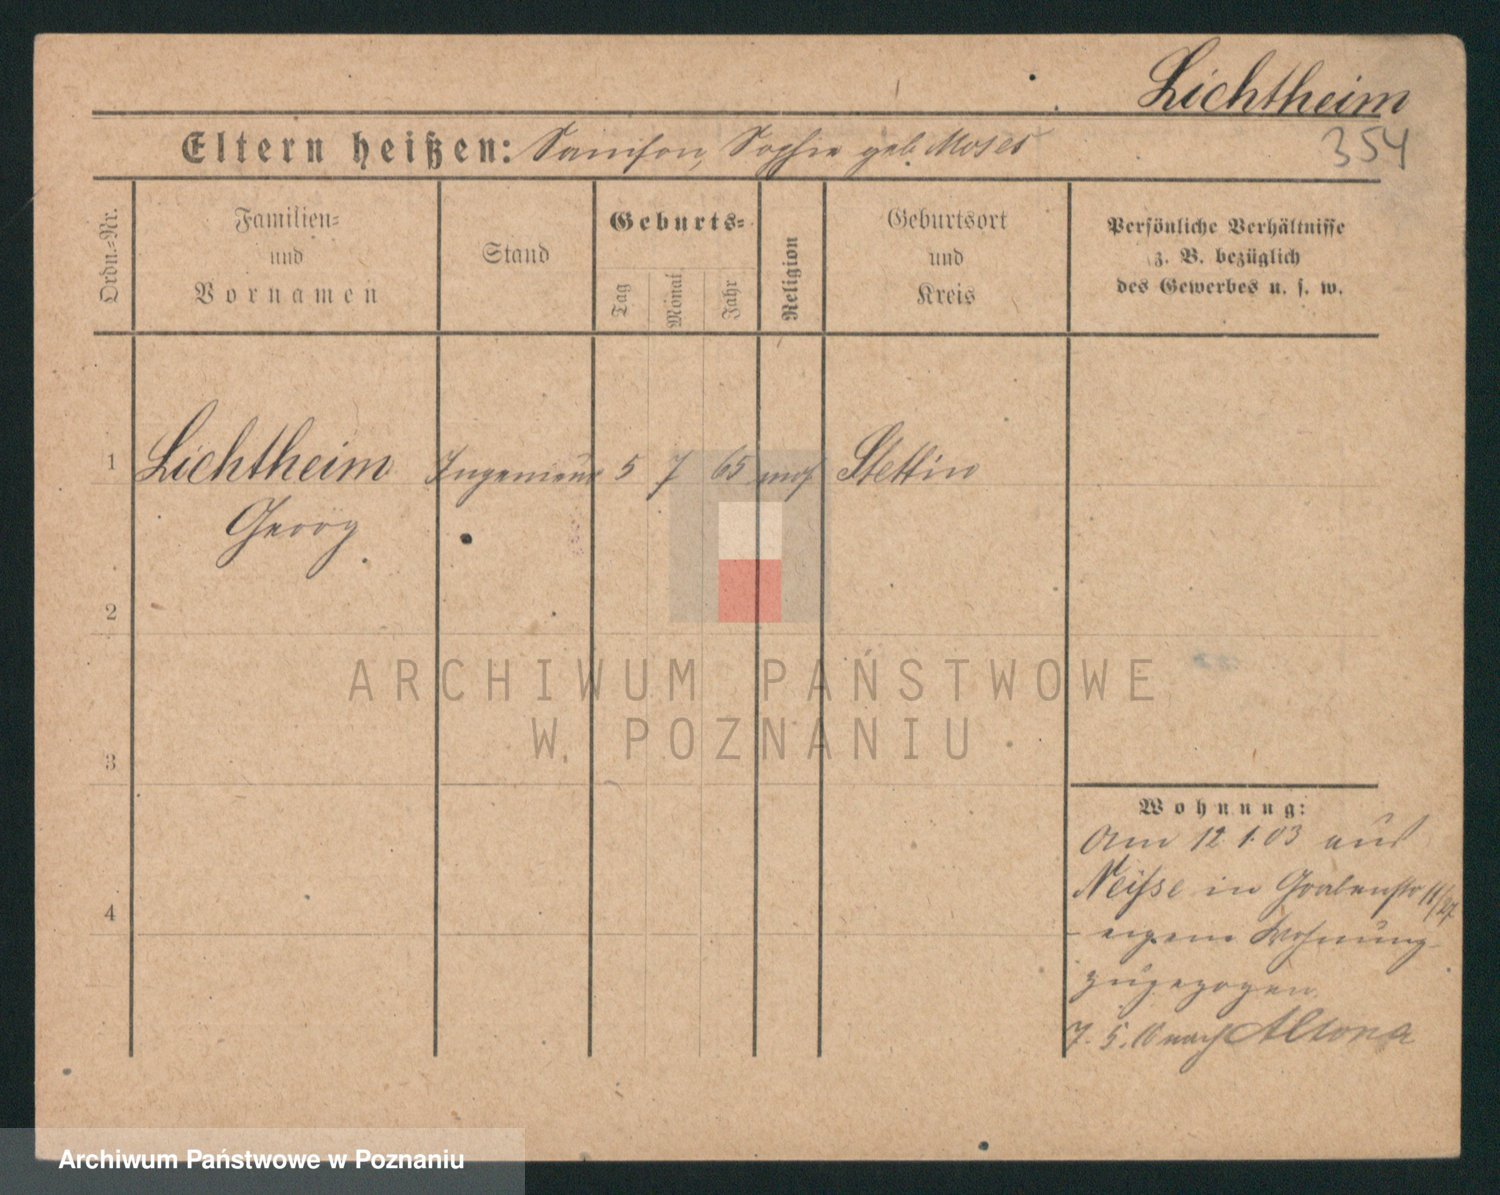 Lichtheim
354
Eltern heißen: Samson, Sophie geb. Moses
Ordn.-Nr.
Familien-
und
Vornamen
Stand
Geburts-
Tag
Monat
Jahr
Religion
Geburtsort
und
Kreis
Persönliche Verhältnisse
z. B. bezüglich
des Gewerbes u. s. w.
1 Lichtheim Ingenieur 5 7 65 mos Stettin
Georg
2
3
4
Wohnung:
Am 12 1. 03 aus
Neisse in Grabenstr 11/27
eigene Wohnung
zugezogen
7. 5. nach Altona
ARCHIWUM PAŃSTWOWE
W POZNANIU
Archiwum Państwowe w Poznaniu